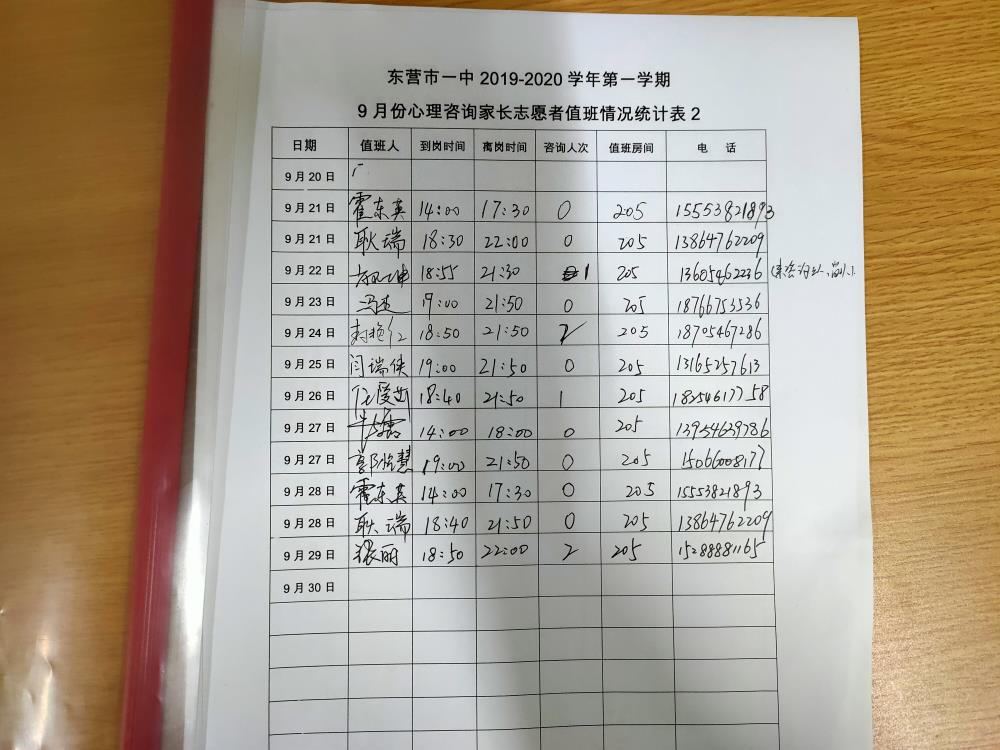 东营市一中 2019-2020 学年第一学期
9 月份心理咨询家长志愿者值班情况统计表 2
日期 值班人 到岗时间 离岗时间 咨询人次 值班房间 电 话
9 月 20 日
9 月 21 日 霍东英 14:00 17:30 0 205 15553821893
9 月 21 日 耿瑞 18:30 22:00 0 205 13864762209
9 月 22 日 18:55 21:30 1 205 13605462236
9 月 23 日 冯杰 19:00 21:50 0 205 18766753536
9 月 24 日 封艳红 18:50 21:50 2 205 18705467286
9 月 25 日 闫瑞侠 19:00 21:50 0 205 13165257613
9 月 26 日 18:40 21:50 1 205 18254617758
9 月 27 日 14:00 18:00 0 205 13954639786
9 月 27 日 19:00 21:50 0 205 15066008177
9 月 28 日 霍东英 14:00 17:30 0 205 15553821893
9 月 28 日 耿瑞 18:40 21:50 0 205 13864762209
9 月 29 日 张丽 18:50 22:00 2 205 15288881165
9 月 30 日